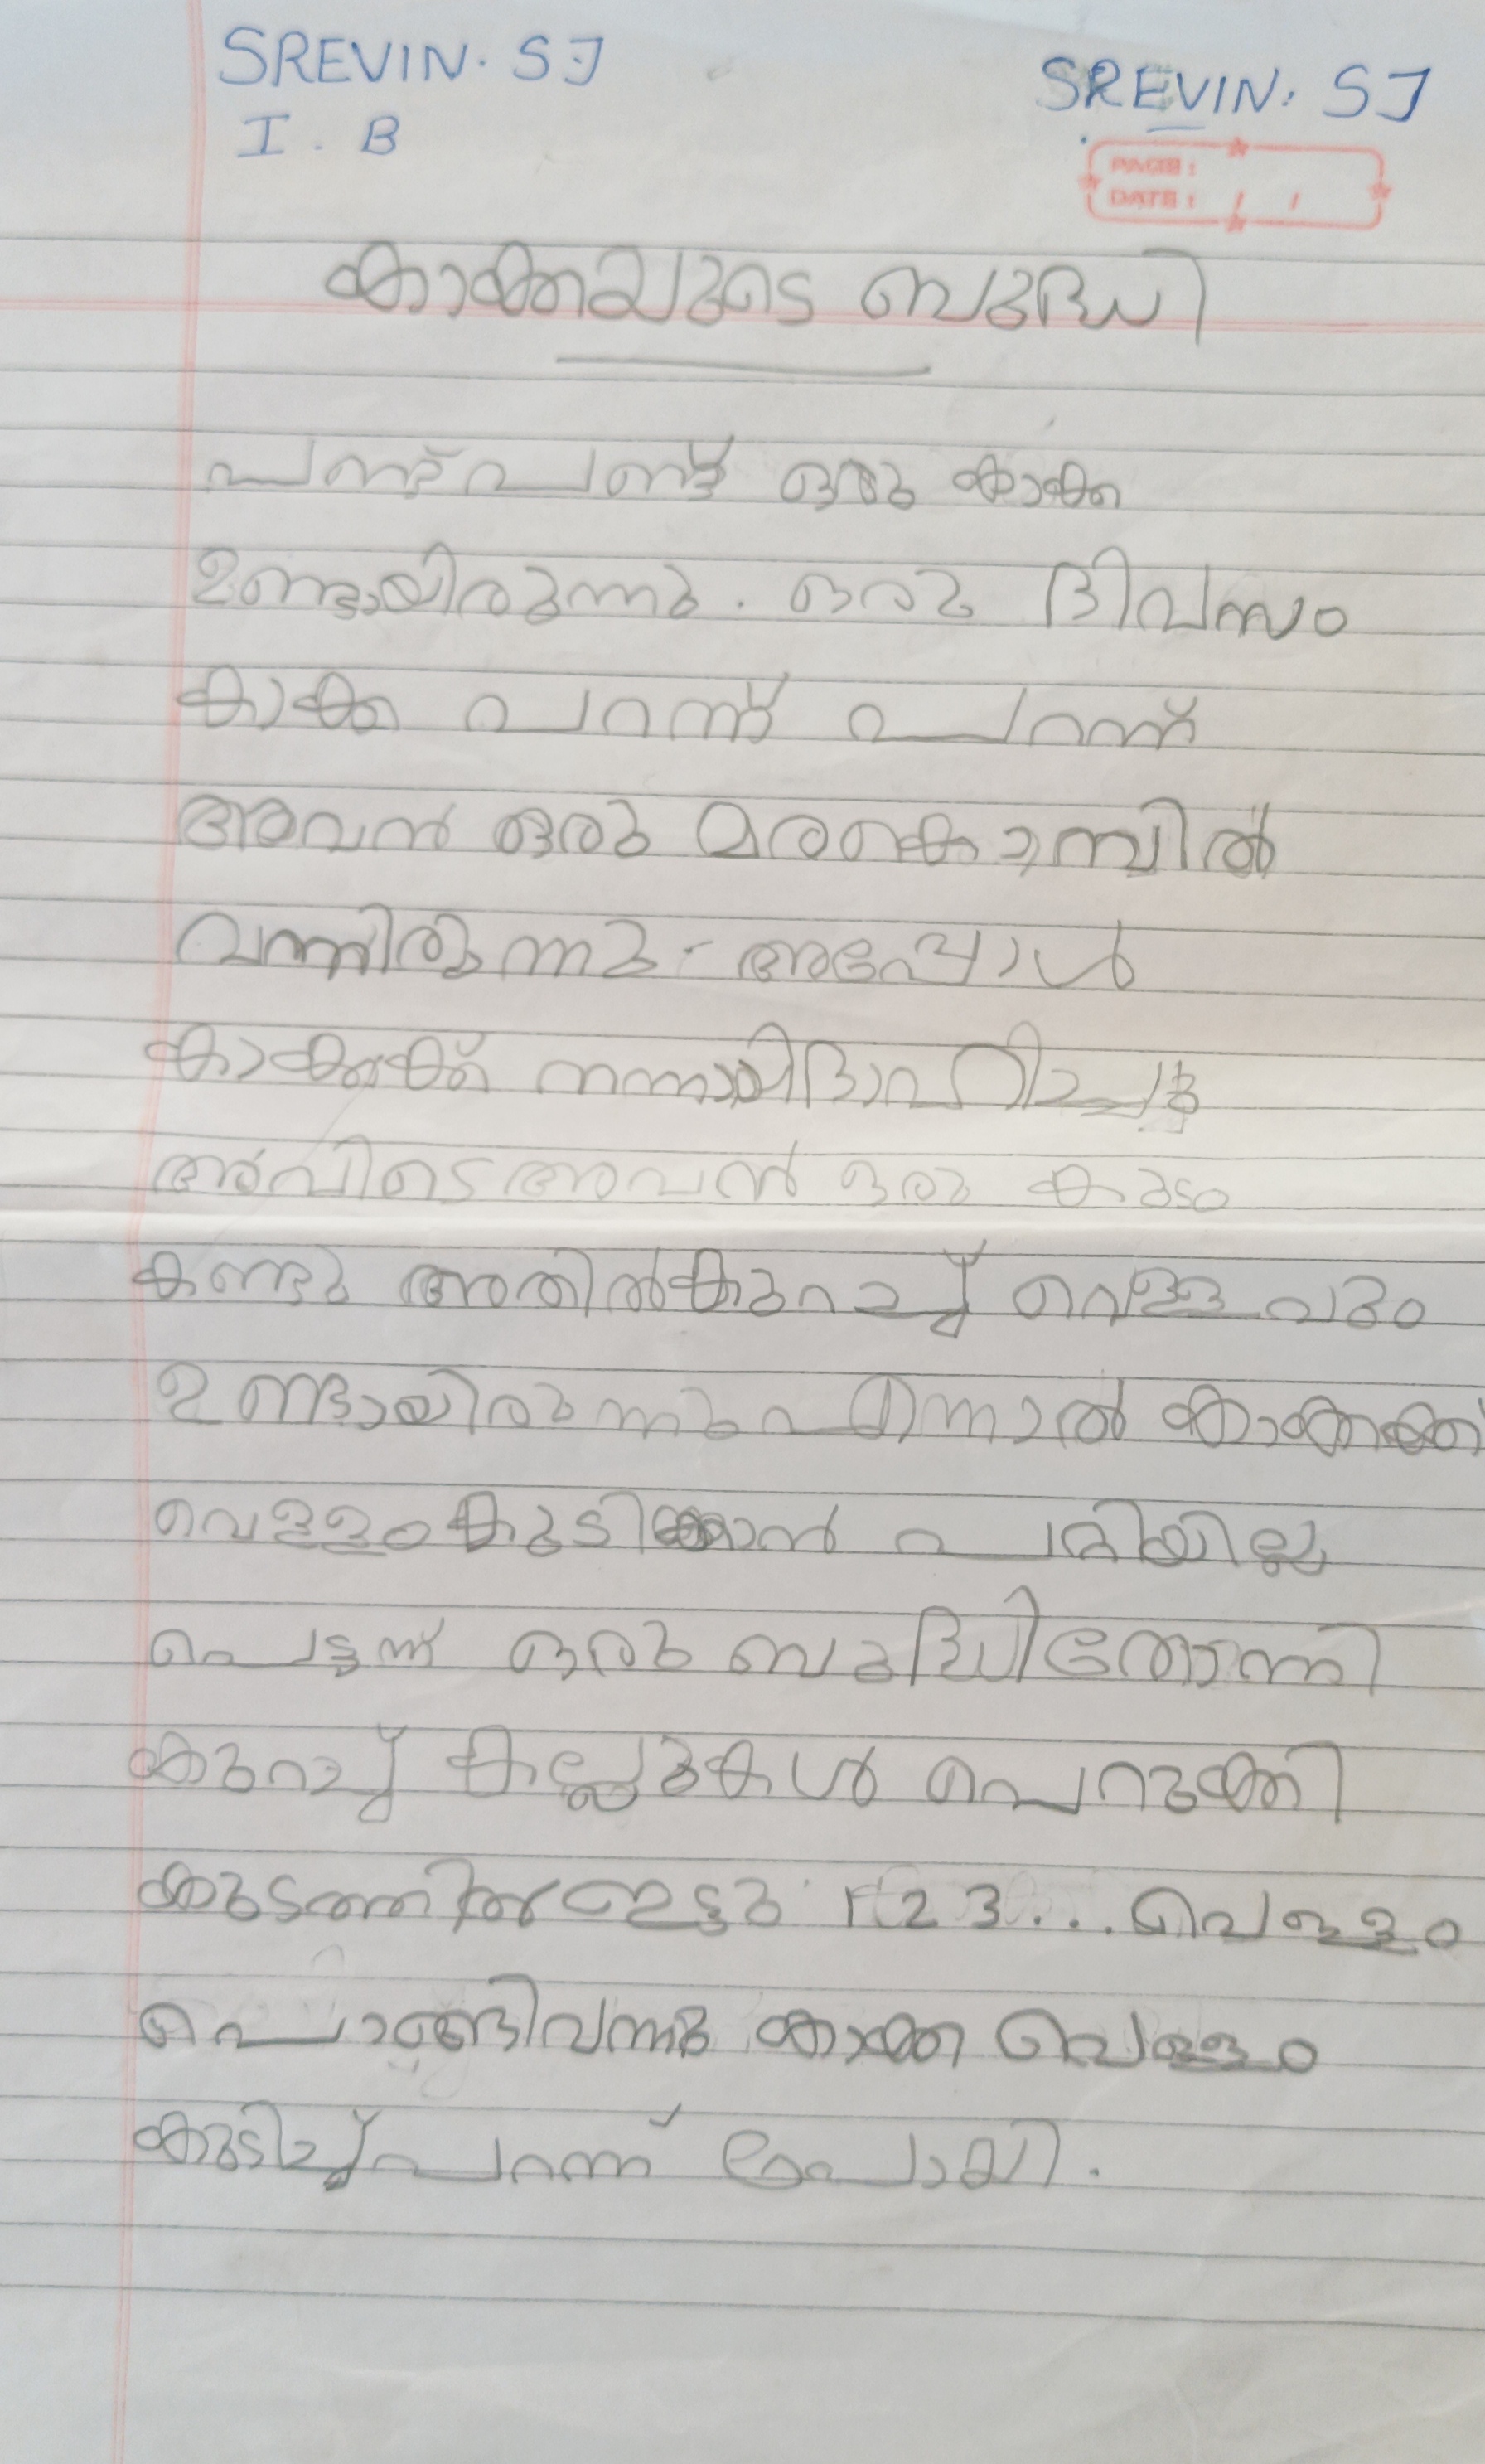 SREVIN. S J
SREVIN. S J
I. B
PAGE :
DATE : / /
കാക്കയുടെ ബുദ്ധി
പണ്ട് പണ്ട് ഒരു കാക്ക
ഉണ്ടായിരുന്നു. ഒരു ദിവസം
കാക്ക പറന്ന് പറന്ന്
അവൻ ഒരു മരകൊമ്പിൽ
വന്നിരുന്നു. അപ്പോൾ
കാക്കക്ക് നന്നായിദാഹിച്ചു
അവിടെ അവൻ ഒരു കുടം
കണ്ടു അതിൽ കുറച്ച് വെള്ളവും
ഉണ്ടായിരുന്നു എന്നാൽ കാക്കക്ക്
വെള്ളം കുടിക്കാൻ പറ്റിയില്ല
പെട്ടന്ന് ഒരു ബുദ്ധി തോന്നി
കുറച്ച് കല്ലുകൾ പെറുക്കി
കുടത്തിൽ ഇട്ടു 1 2 3... വെള്ളം
പൊങ്ങിവന്നു കാക്ക വെള്ളം
കുടിച്ച് പറന്ന് പോയി.